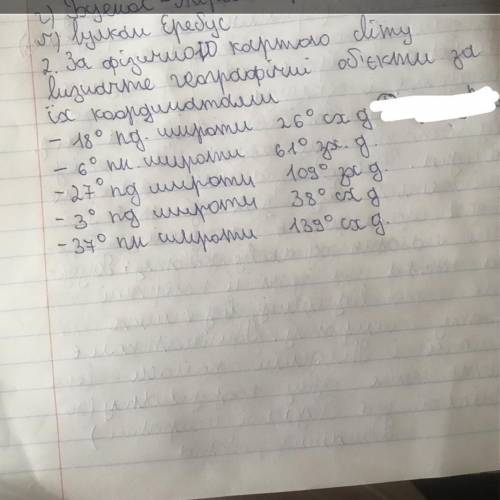 г) Буенос-
д) вулкан Еребус
2. За фізичною картою світу
визначте географічні об'єкти за
їх координатами
- 18° пд. широти 26° сх д
- 6° пн. широти 61° зх. д.
- 27° пд широти 109° зх д.
- 3° пд широти 38° сх д
- 37° пн широти 139° сх д.